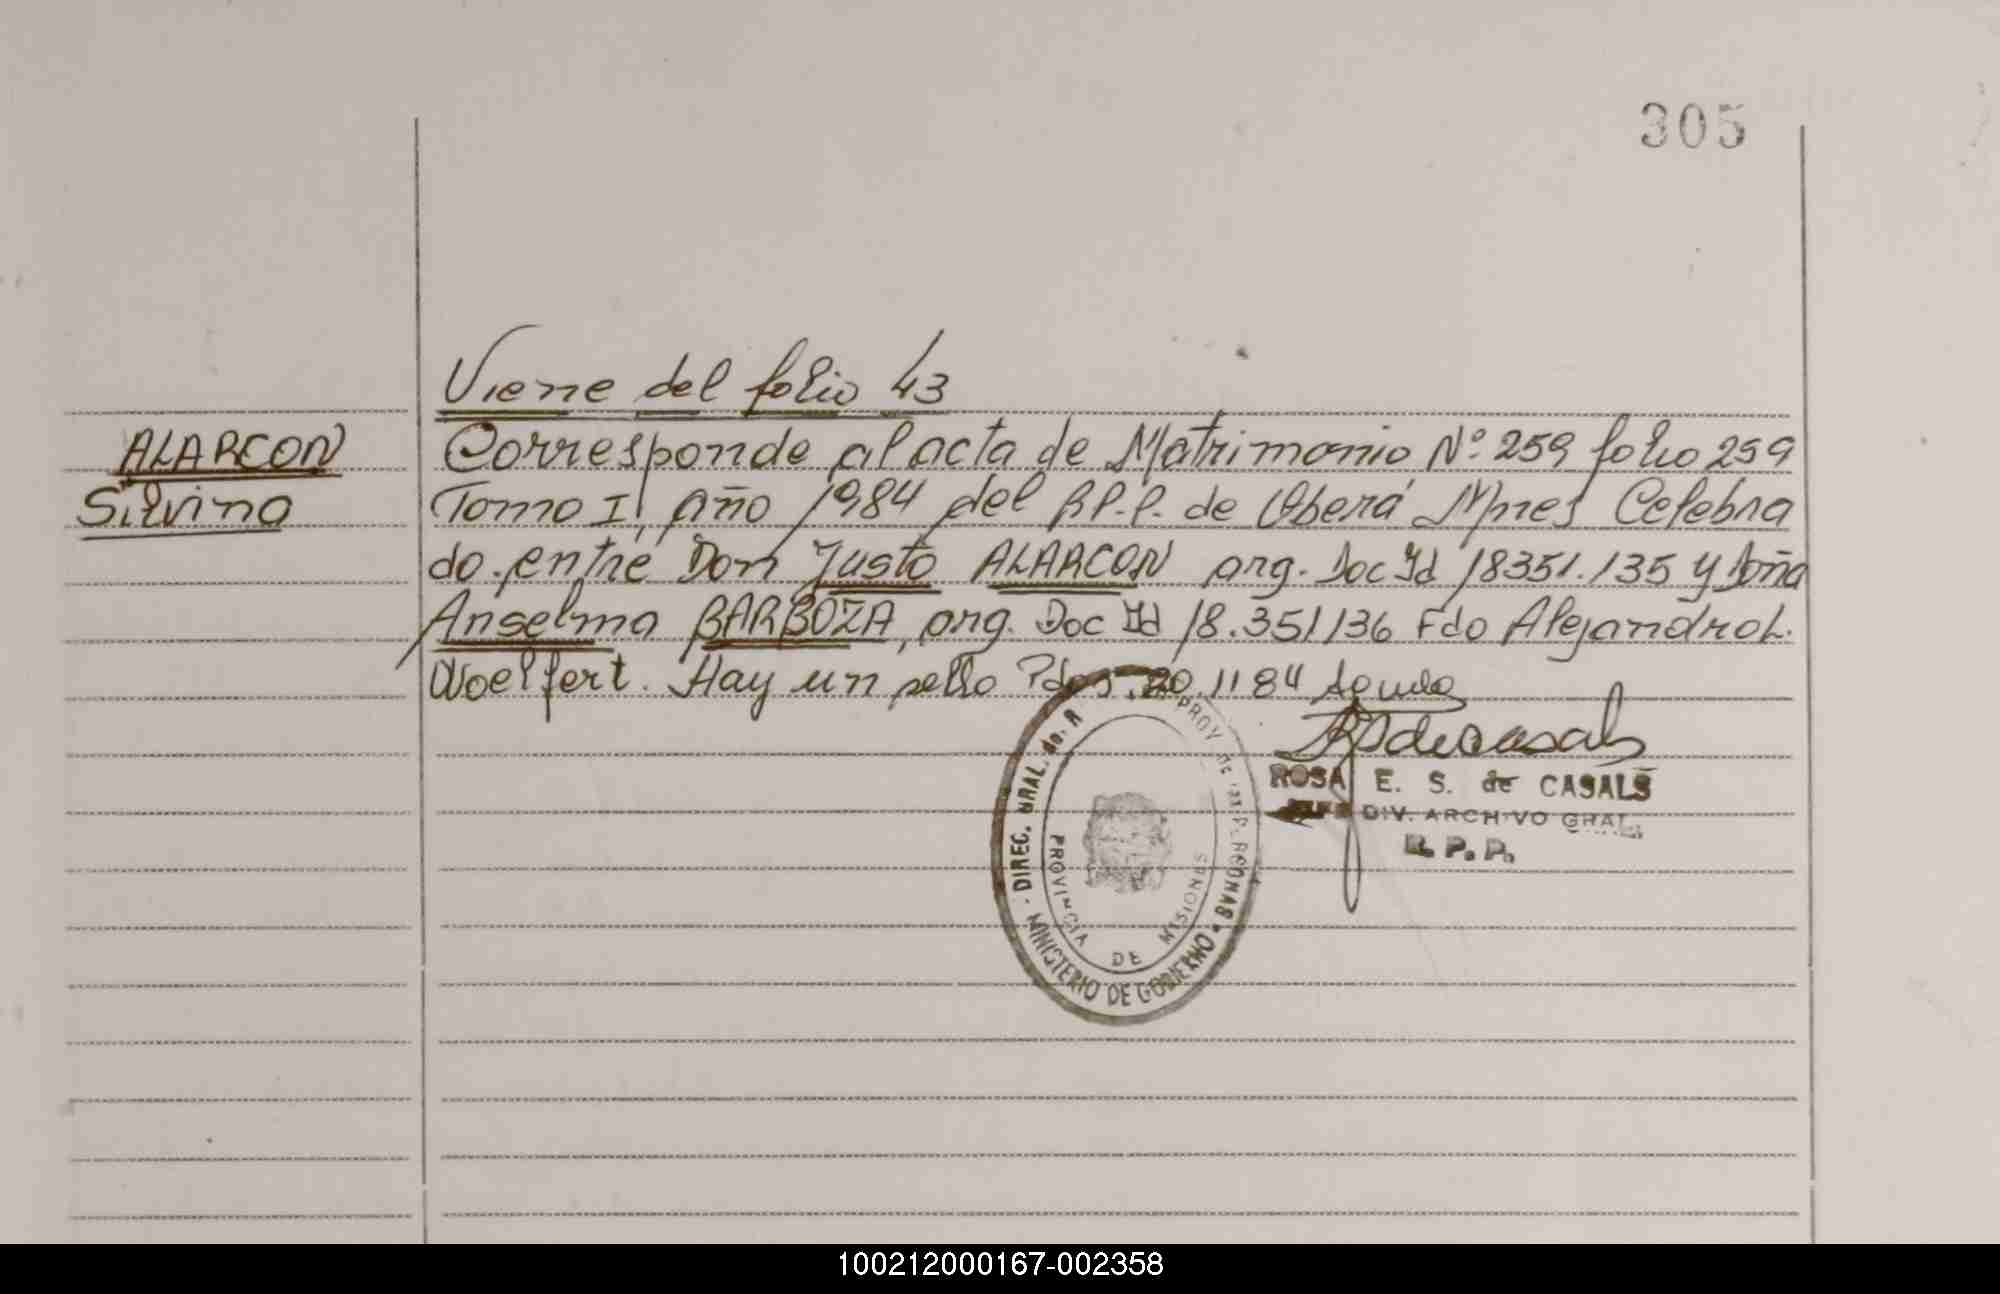 305
Viene del folio 43
ALARCON
Silvino
Corresponde al acta de Matrimonio N° 259 folio 259
Tomo I, año 1984 del R.P.P. de Oberá Mnes Celebra
do entre Don Justo ALARCON arg. Doc Id 18351.135 y Doña
Anselma BARBOZA, arg. Doc Id 18.351136 Fdo Alejandro L.
Woelfert. Hay un sello Pdas. 20.11 84
ROSA E. S. de CASALS
JEFE DIV. ARCHIVO GRAL.
R. P. P.
DIREC. GRAL. de. R PROV. DE LAS PERSONAS
MINISTERIO DE GOBIERNO
PROVINCIA DE MISIONES
100212000167-002358